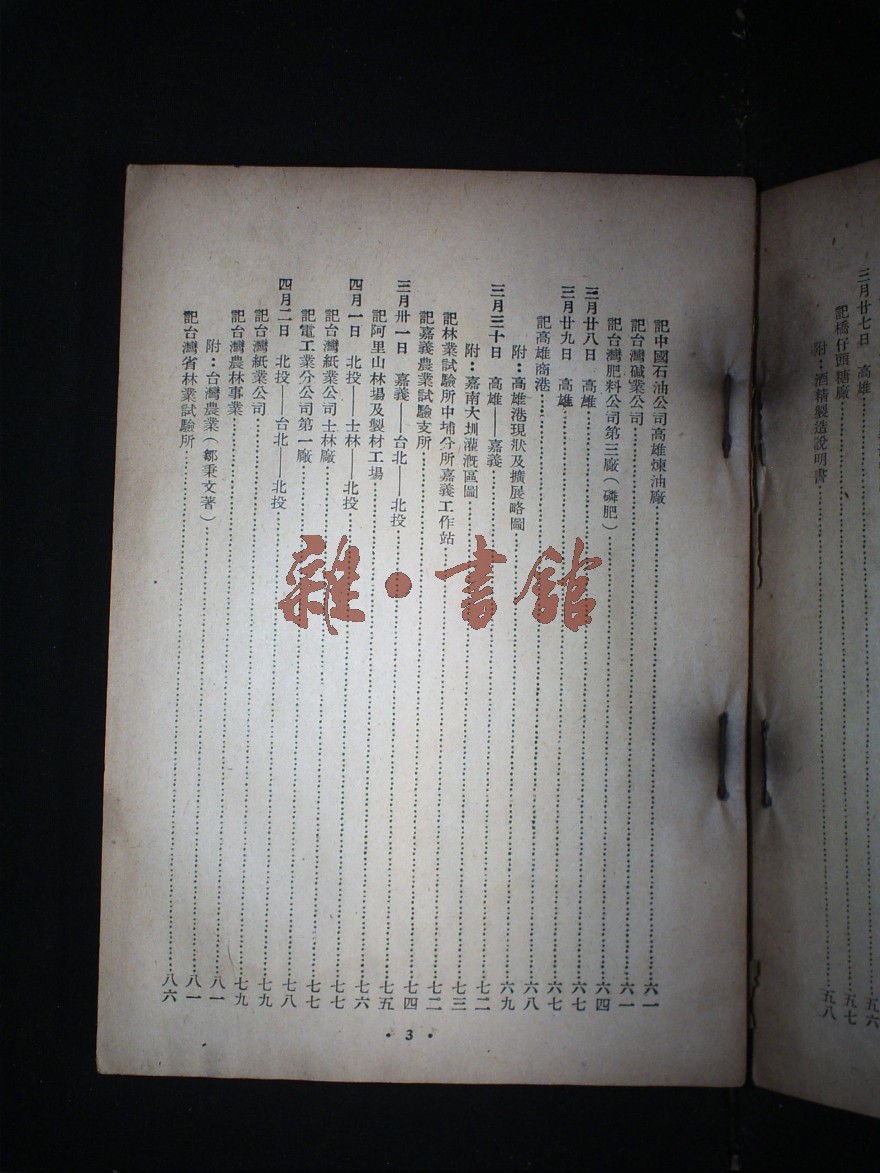 三月廿七日　高雄……五六
記橋仔頭糖廠……五七
附：酒精製造說明書……五八
記中國石油公司高雄煉油廠……六一
記台灣碱業公司……六一
記台灣肥料公司第三廠（磷肥）……六四
三月廿八日　高雄……六七
三月廿九日　高雄……六七
記高雄商港……六八
附：高雄港現狀及擴展略圖……六九
三月三十日　高雄——嘉義……七二
附：嘉南大圳灌漑區圖……七三
記林業試驗所中埔分所嘉義工作站……七二
記嘉義農業試驗支所……七四
三月卅一日　嘉義——台北——北投……七五
記阿里山林場及製材工場……七六
四月一日　北投——士林——北投……七七
記台灣紙業公司士林廠……七七
記電工業分公司第一廠……七八
四月二日　北投——台北——北投……七九
記台灣紙業公司……七九
記台灣農林事業……八一
附：台灣農業（鄒秉文著）……八一
記台灣省林業試驗所……八六
· 3 ·
雜·書館